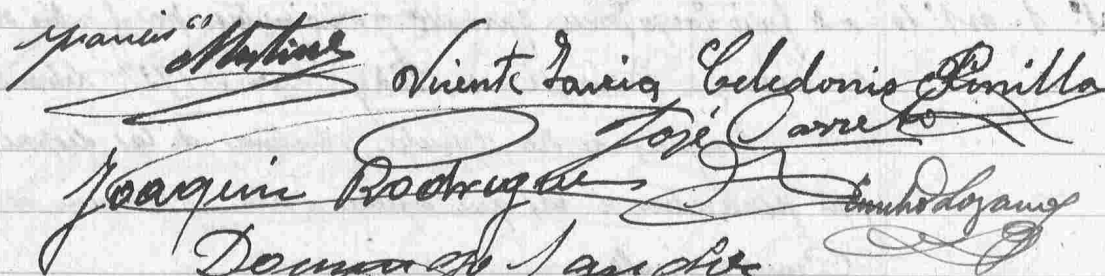 Francisco Martinez Vicente Garcia Celedonio Pinilla
José Carreto
Joaquin Rodriguez Emilio Lozano
Domingo Sanchez